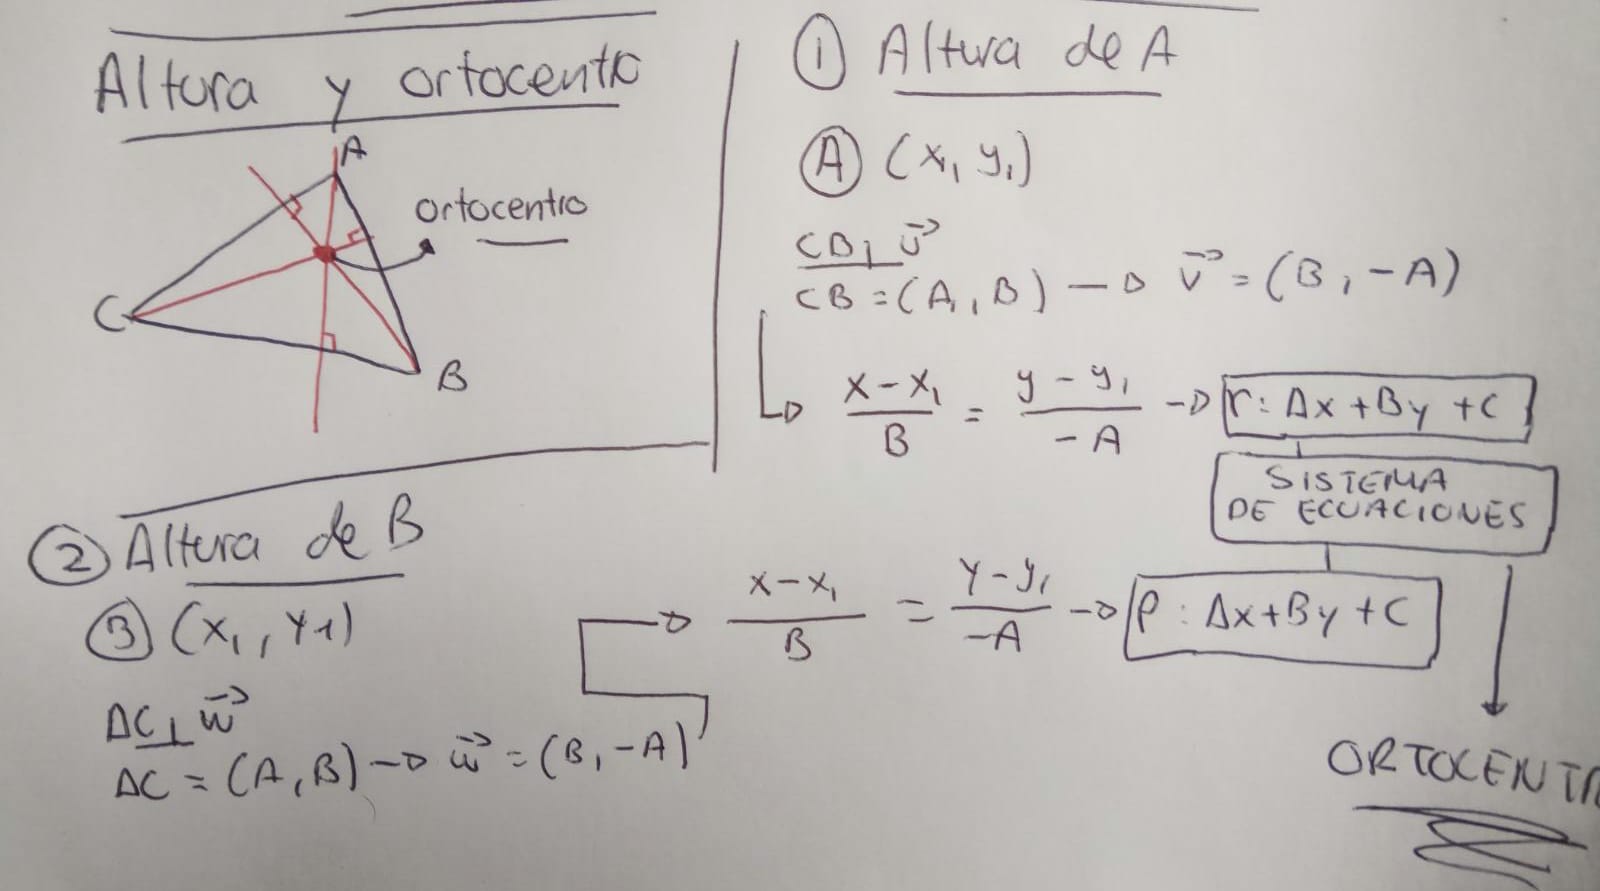 Altura y ortocentro
A
ortocentro
C
B
① Altura de A
Ⓐ (x₁, y₁)
CB ⊥ v⃗
CB = (A, B) → v⃗ = (B, -A)
(x - x₁)/B = (y - y₁)/(-A) → r: Ax + By + C
SISTEMA
DE ECUACIONES
② Altura de B
Ⓑ (x₁, y₁)
AC ⊥ w⃗
AC = (A, B) → w⃗ = (B, -A)
(x - x₁)/B = (y - y₁)/(-A) → p: Ax + By + C